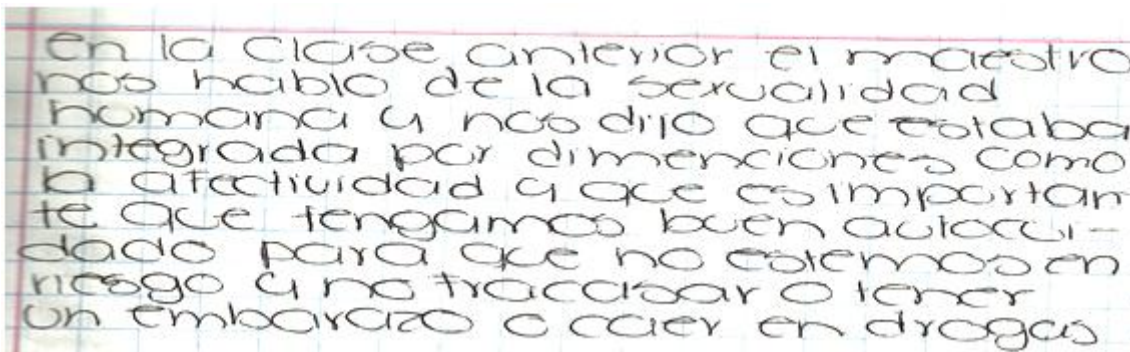 en la clase anterior el maestro
nos hablo de la sexualidad
humana y nos dijo que estaba
integrada por dimenciones como
la afectividad y que es importan
te que tengamos buen autocui-
dado para que no estemos en
riesgo y no fracasar o tener
un embarazo o caer en drogas